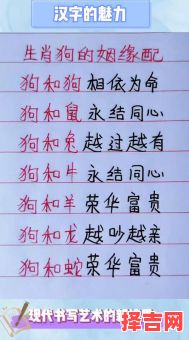 汉字的魅力
生肖狗的姻缘配
狗和狗相依为命
狗和鼠永结同心
狗和兔越过越有
狗和牛永结同心
狗和羊荣华富贵
狗和龙越吵越亲
狗和蛇荣华富贵
现代书写艺术的
择吉网
zejiwang.com